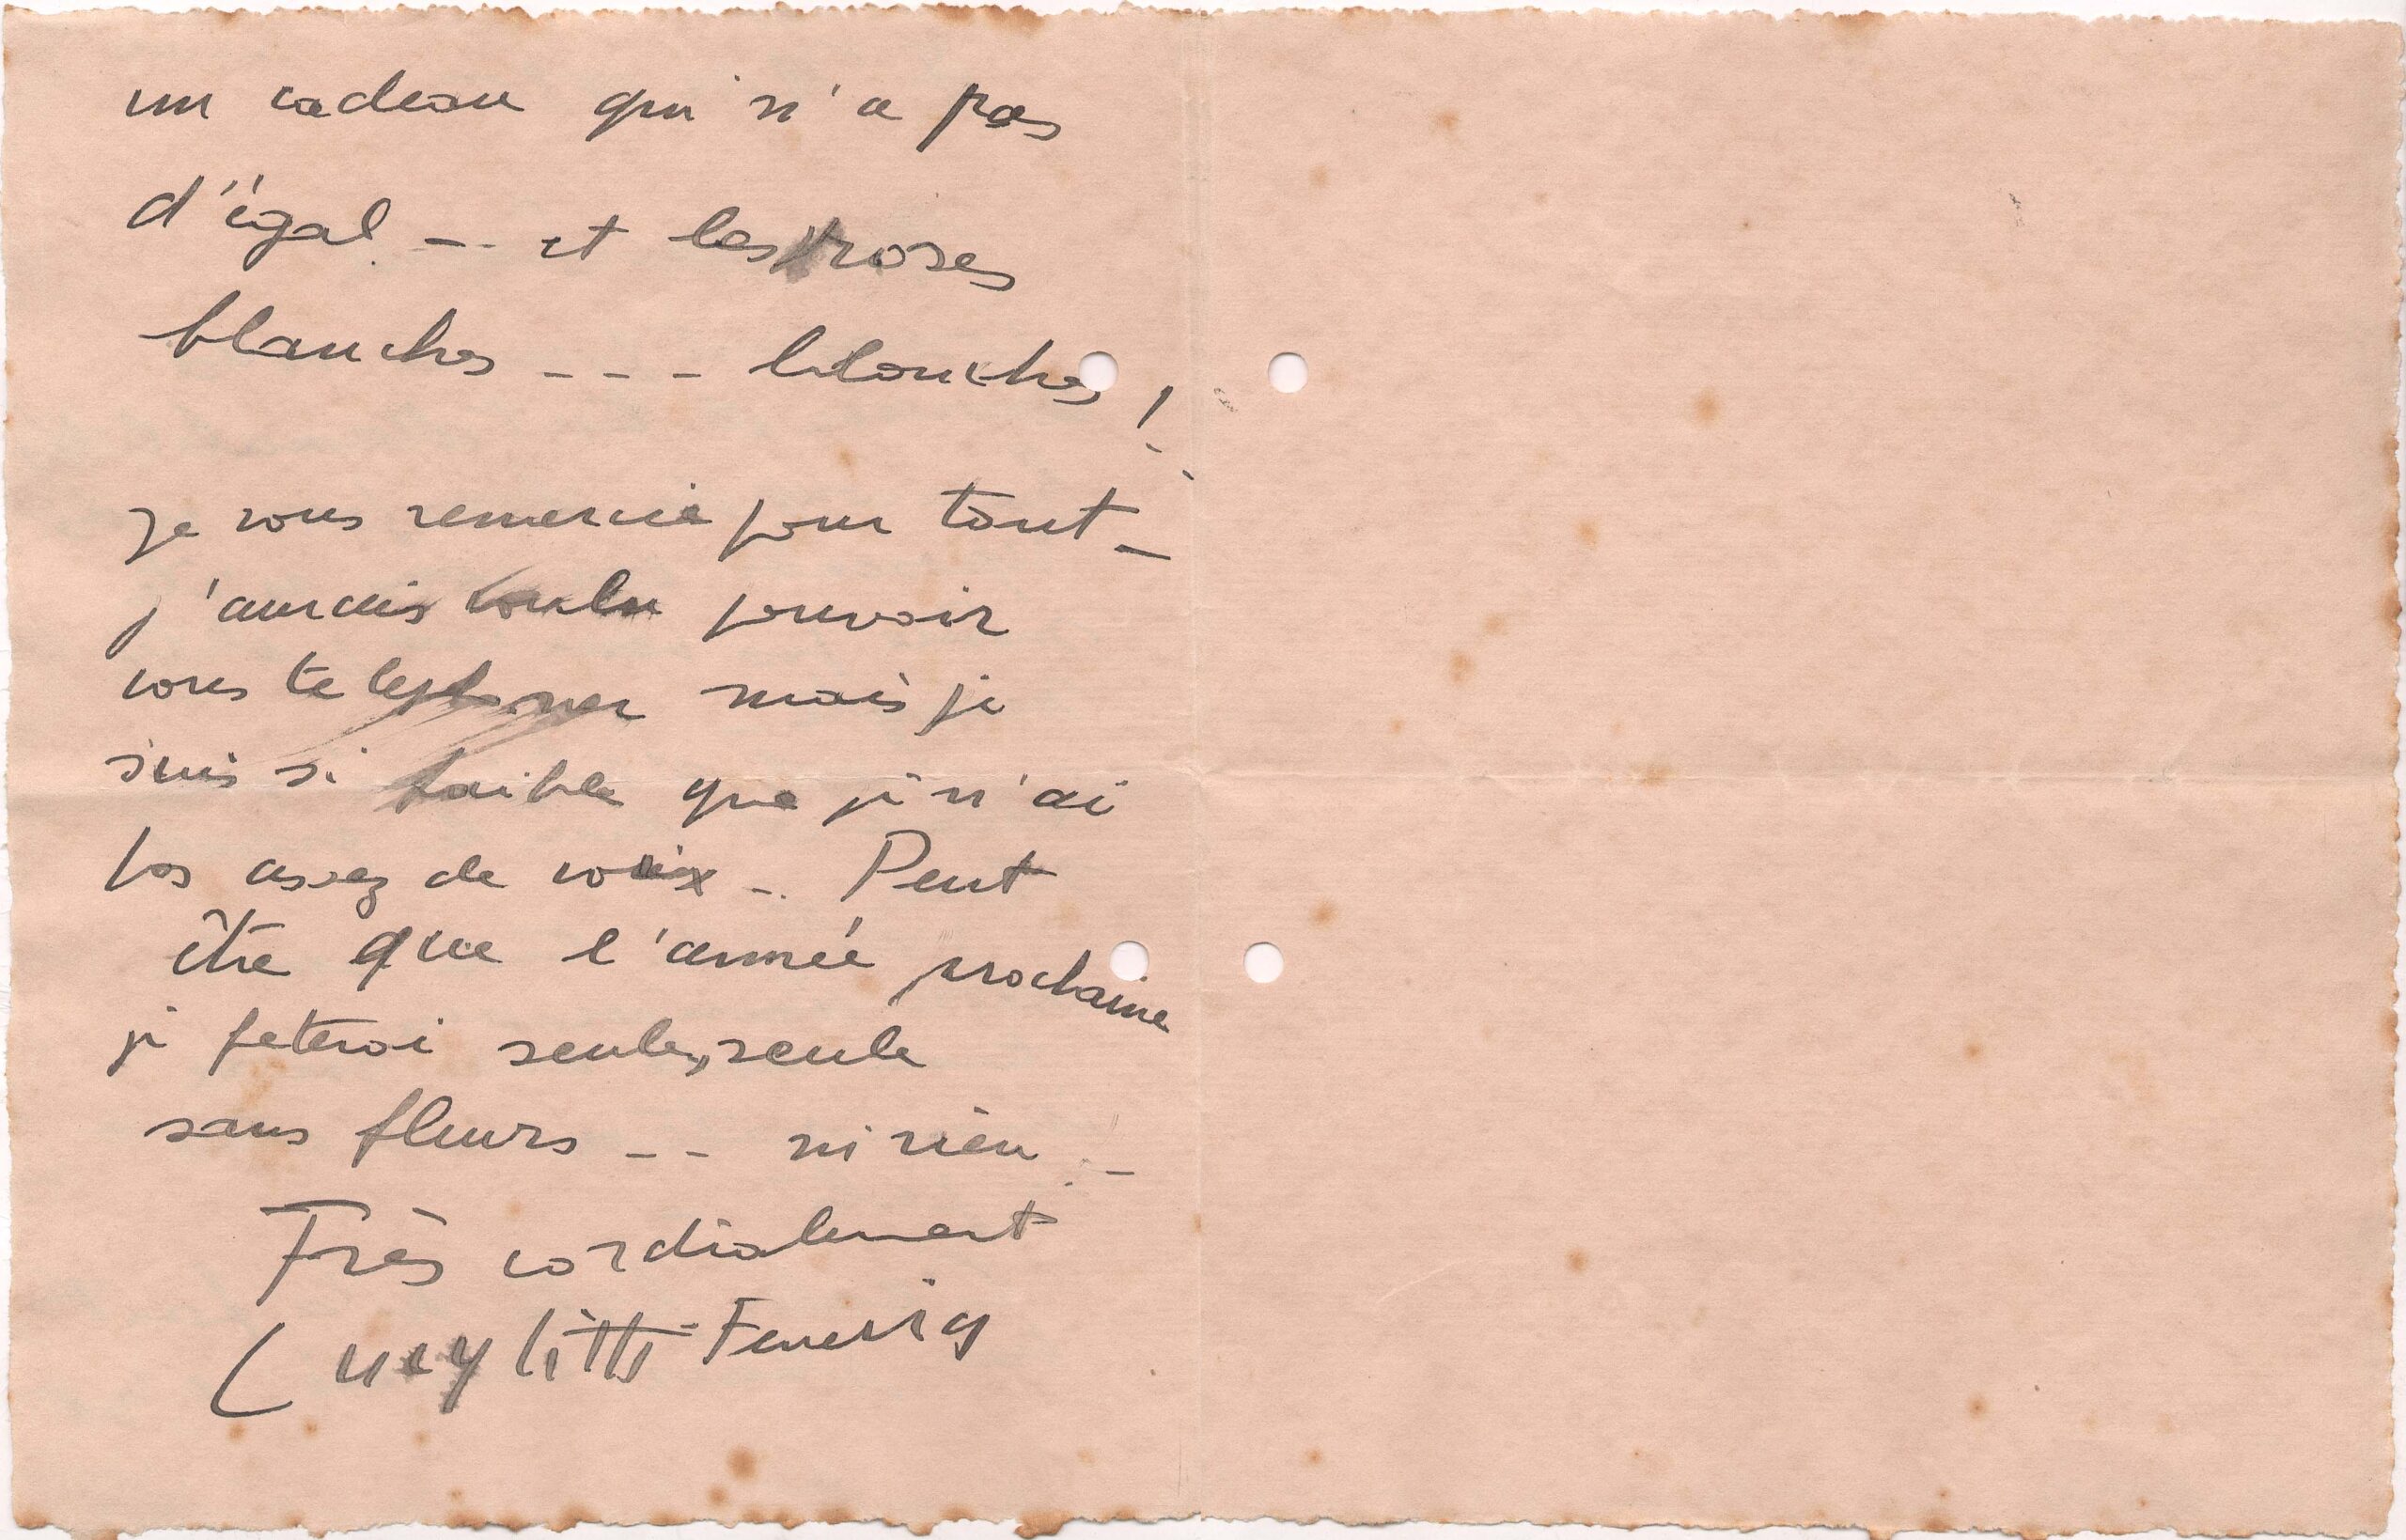 un cadeau qui n'a pas
d'égal -- et les roses
blanches --- blanches!..
je vous remercie pour tout -
j'aurais voulu pouvoir
vous telephoner mais je
suis si faible que je n'ai
pas assez de voix -. Peut
être que l'année prochaine
je feterai seule, seule
sans fleurs -- ni rien. -
Très cordialement
Lucy